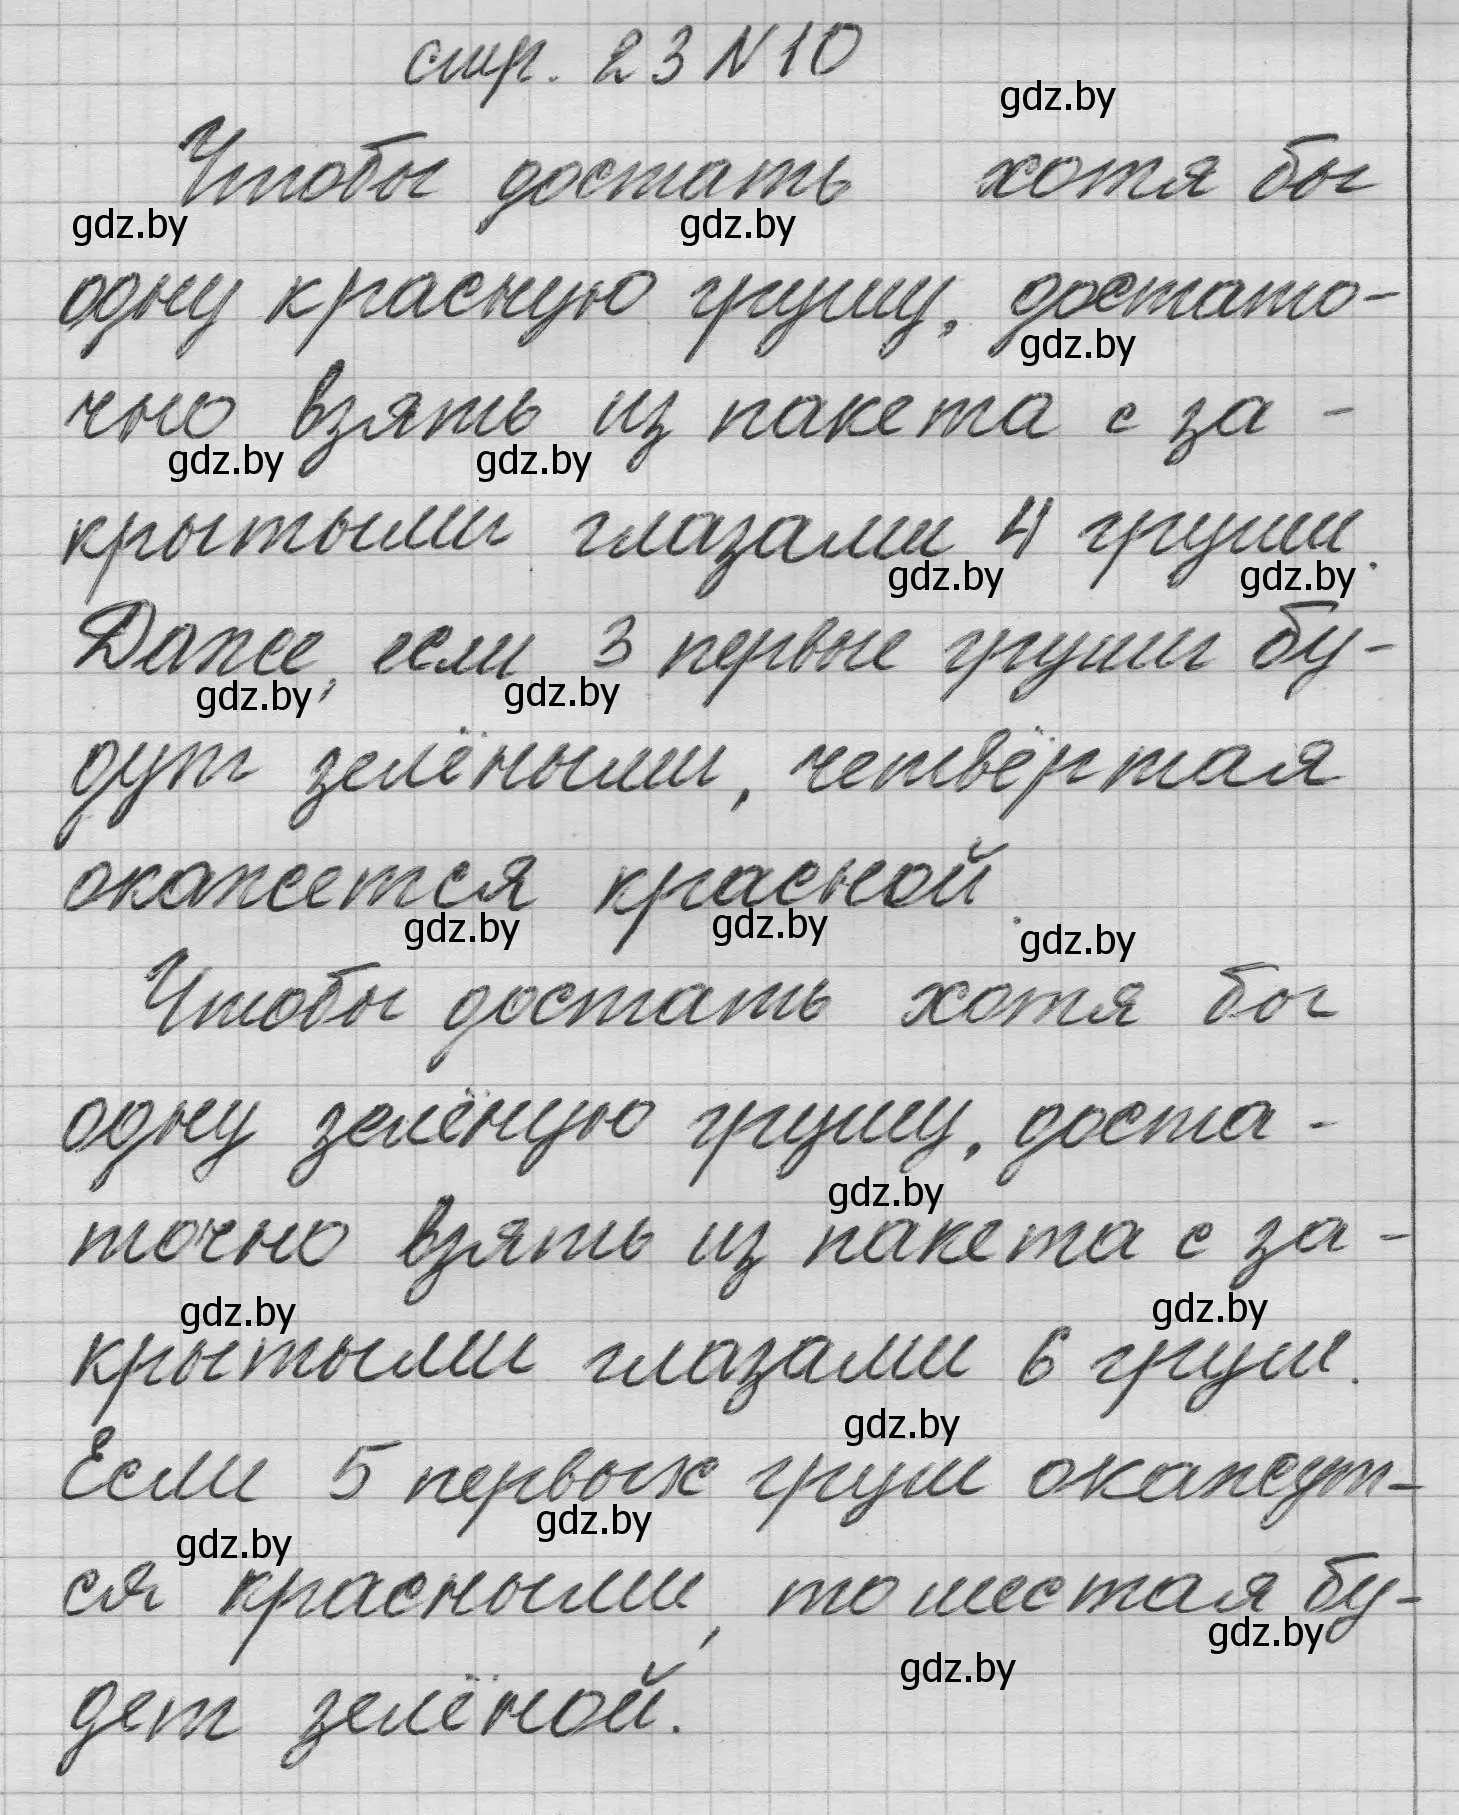 стр. 23 N 10
gdz.by
Чтобы достать хотя бы
gdz.by gdz.by
одну красную грушу, достато-
gdz.by
чно взять из пакета с за-
gdz.by gdz.by
крытыми глазами 4 груши.
gdz.by gdz.by
Даже, если 3 первые груши бу-
gdz.by gdz.by
дут зелёными, четвёртая
окажется красной.
gdz.by gdz.by gdz.by
Чтобы достать хотя бы
одну зелёную грушу, доста-
gdz.by
точно взять из пакета с за-
gdz.by gdz.by
крытыми глазами 6 груш.
gdz.by
Если 5 первых груш окажут-
gdz.by gdz.by
ся красными, то шестая бу-
gdz.by gdz.by
дет зелёной.